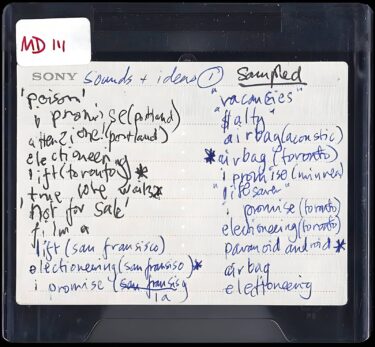 MD 111
SONY sounds + ideas ①
'poison'
i promise (portland)
attenzione! (portland)
electioneering
lift (toronto) *
true love waits *
'Not for Sale'
film a
lift (san fransisco)
electioneering (san fransiso) *
i promise (san fransis
la)
Sampled
"vacancies"
"salty"
airbag (acoustic)
* airbag (toronto)
i promise (minnea
"lifesaver"
i promise (toronto)
electioneering (toronto)
paranoid android *
airbag
electioneering